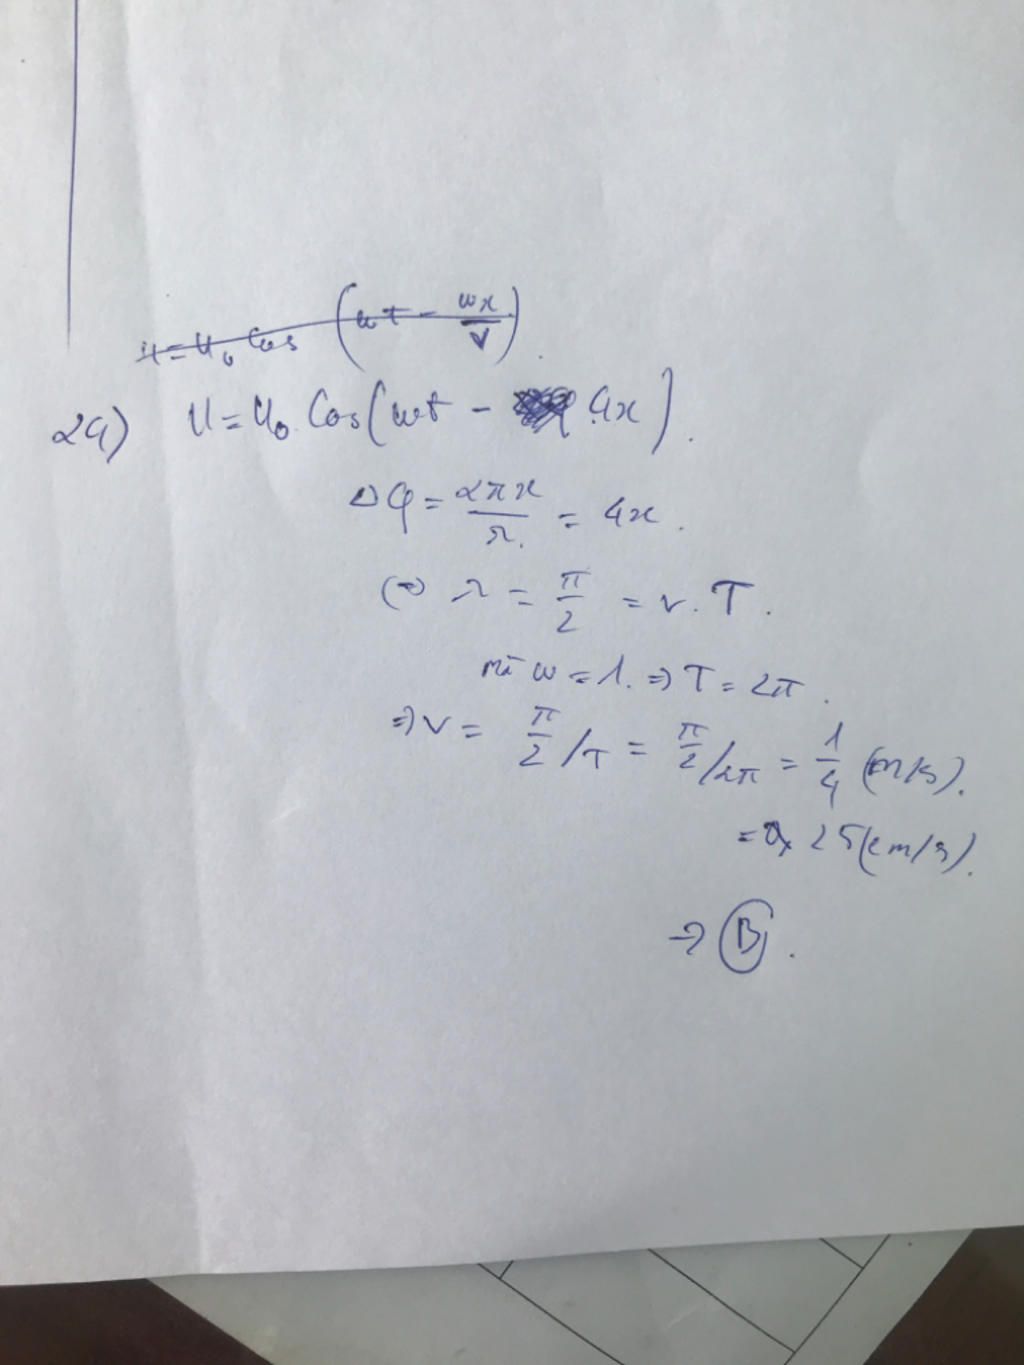 u = u₀ cos (ωt - ωx/v).
24) U = U₀ Cos(ωt - 4x).
Δφ = 2πx/λ = 4x.
(=) λ = π/2 = v.T.
mà ω = 1. => T = 2π.
=> v = π/2 /T = π/2 /2π = 1/4 (m/s).
= 25(cm/s).
→ B.